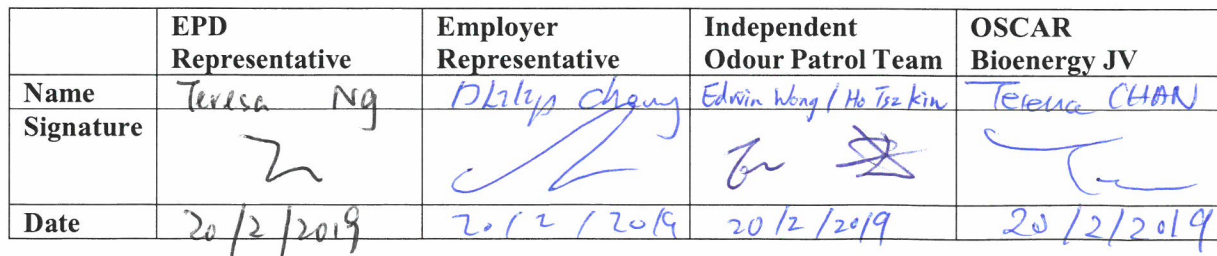 EPD Representative Employer Representative Independent Odour Patrol Team OSCAR Bioenergy JV
Name Teresa Ng Philip Cheung Edwin Wong / Ho Tsz Kin Terence CHAN
Signature
Date 20/2/2019 20/2/2019 20/2/2019 20/2/2019